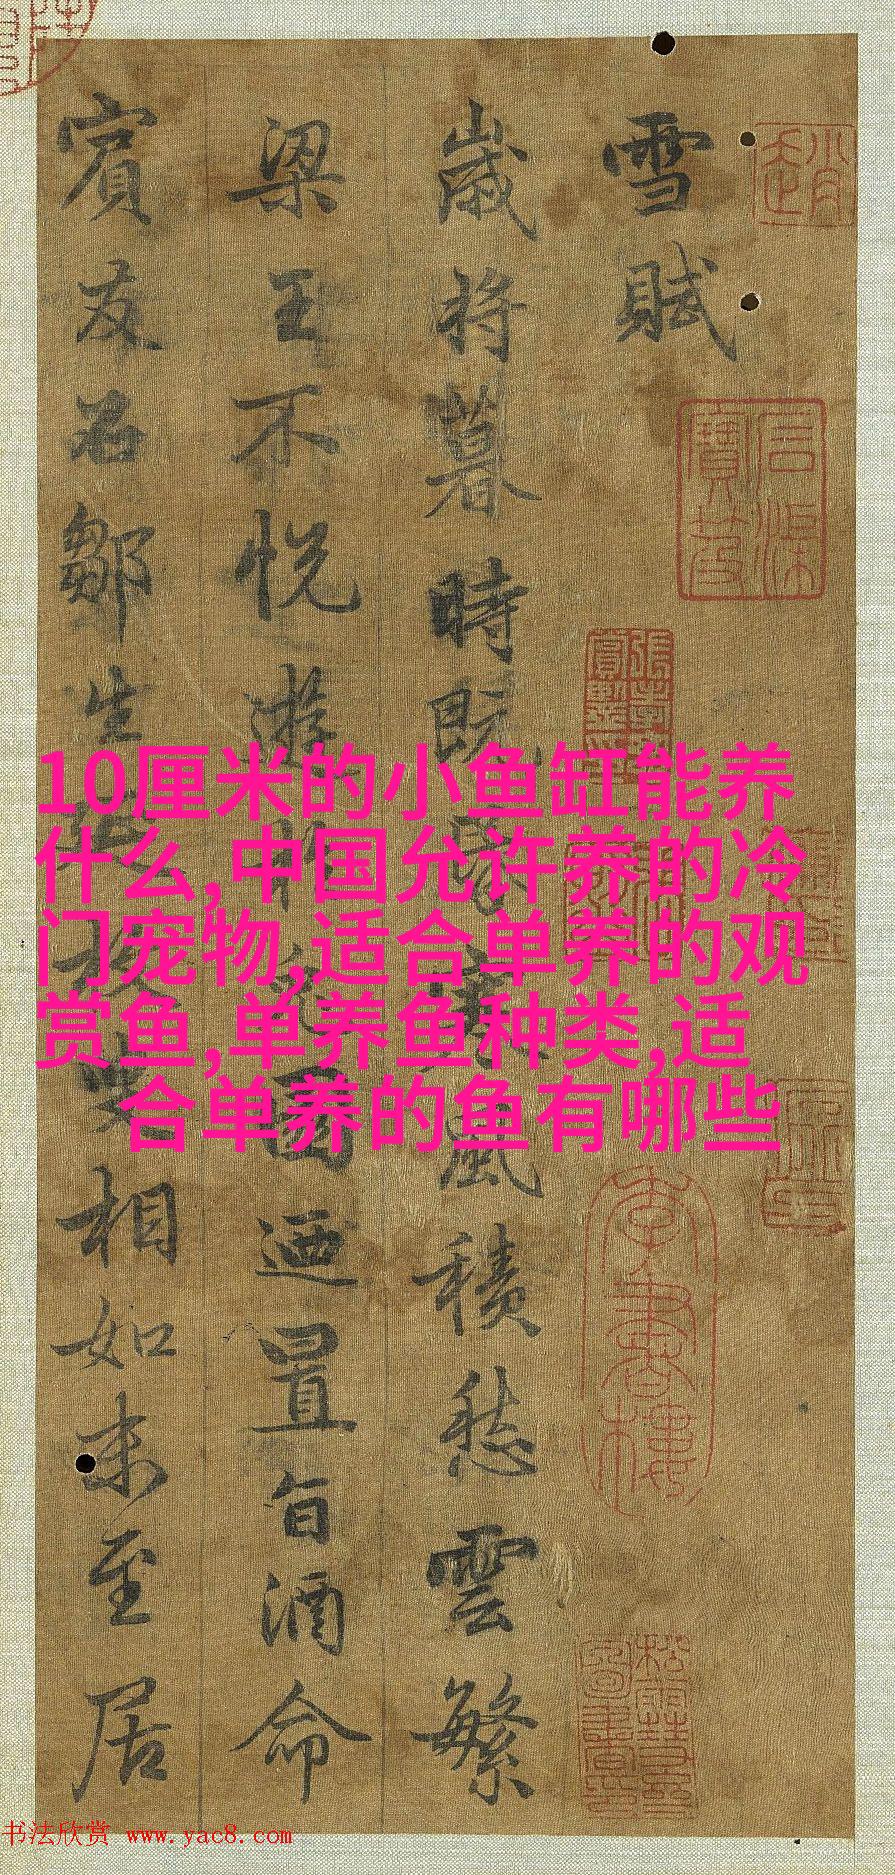 雪賦
歲将暮時既風積愁雲繁
梁王不悦游園迺置旨酒命
賓友召鄒生叟相如末至居
10厘米的小鱼缸能养
什么,中国允许养的冷
门宠物,适合单养的观
赏鱼,单养鱼种类,适
合单养的鱼有哪些
书法欣赏 www.yac8.com